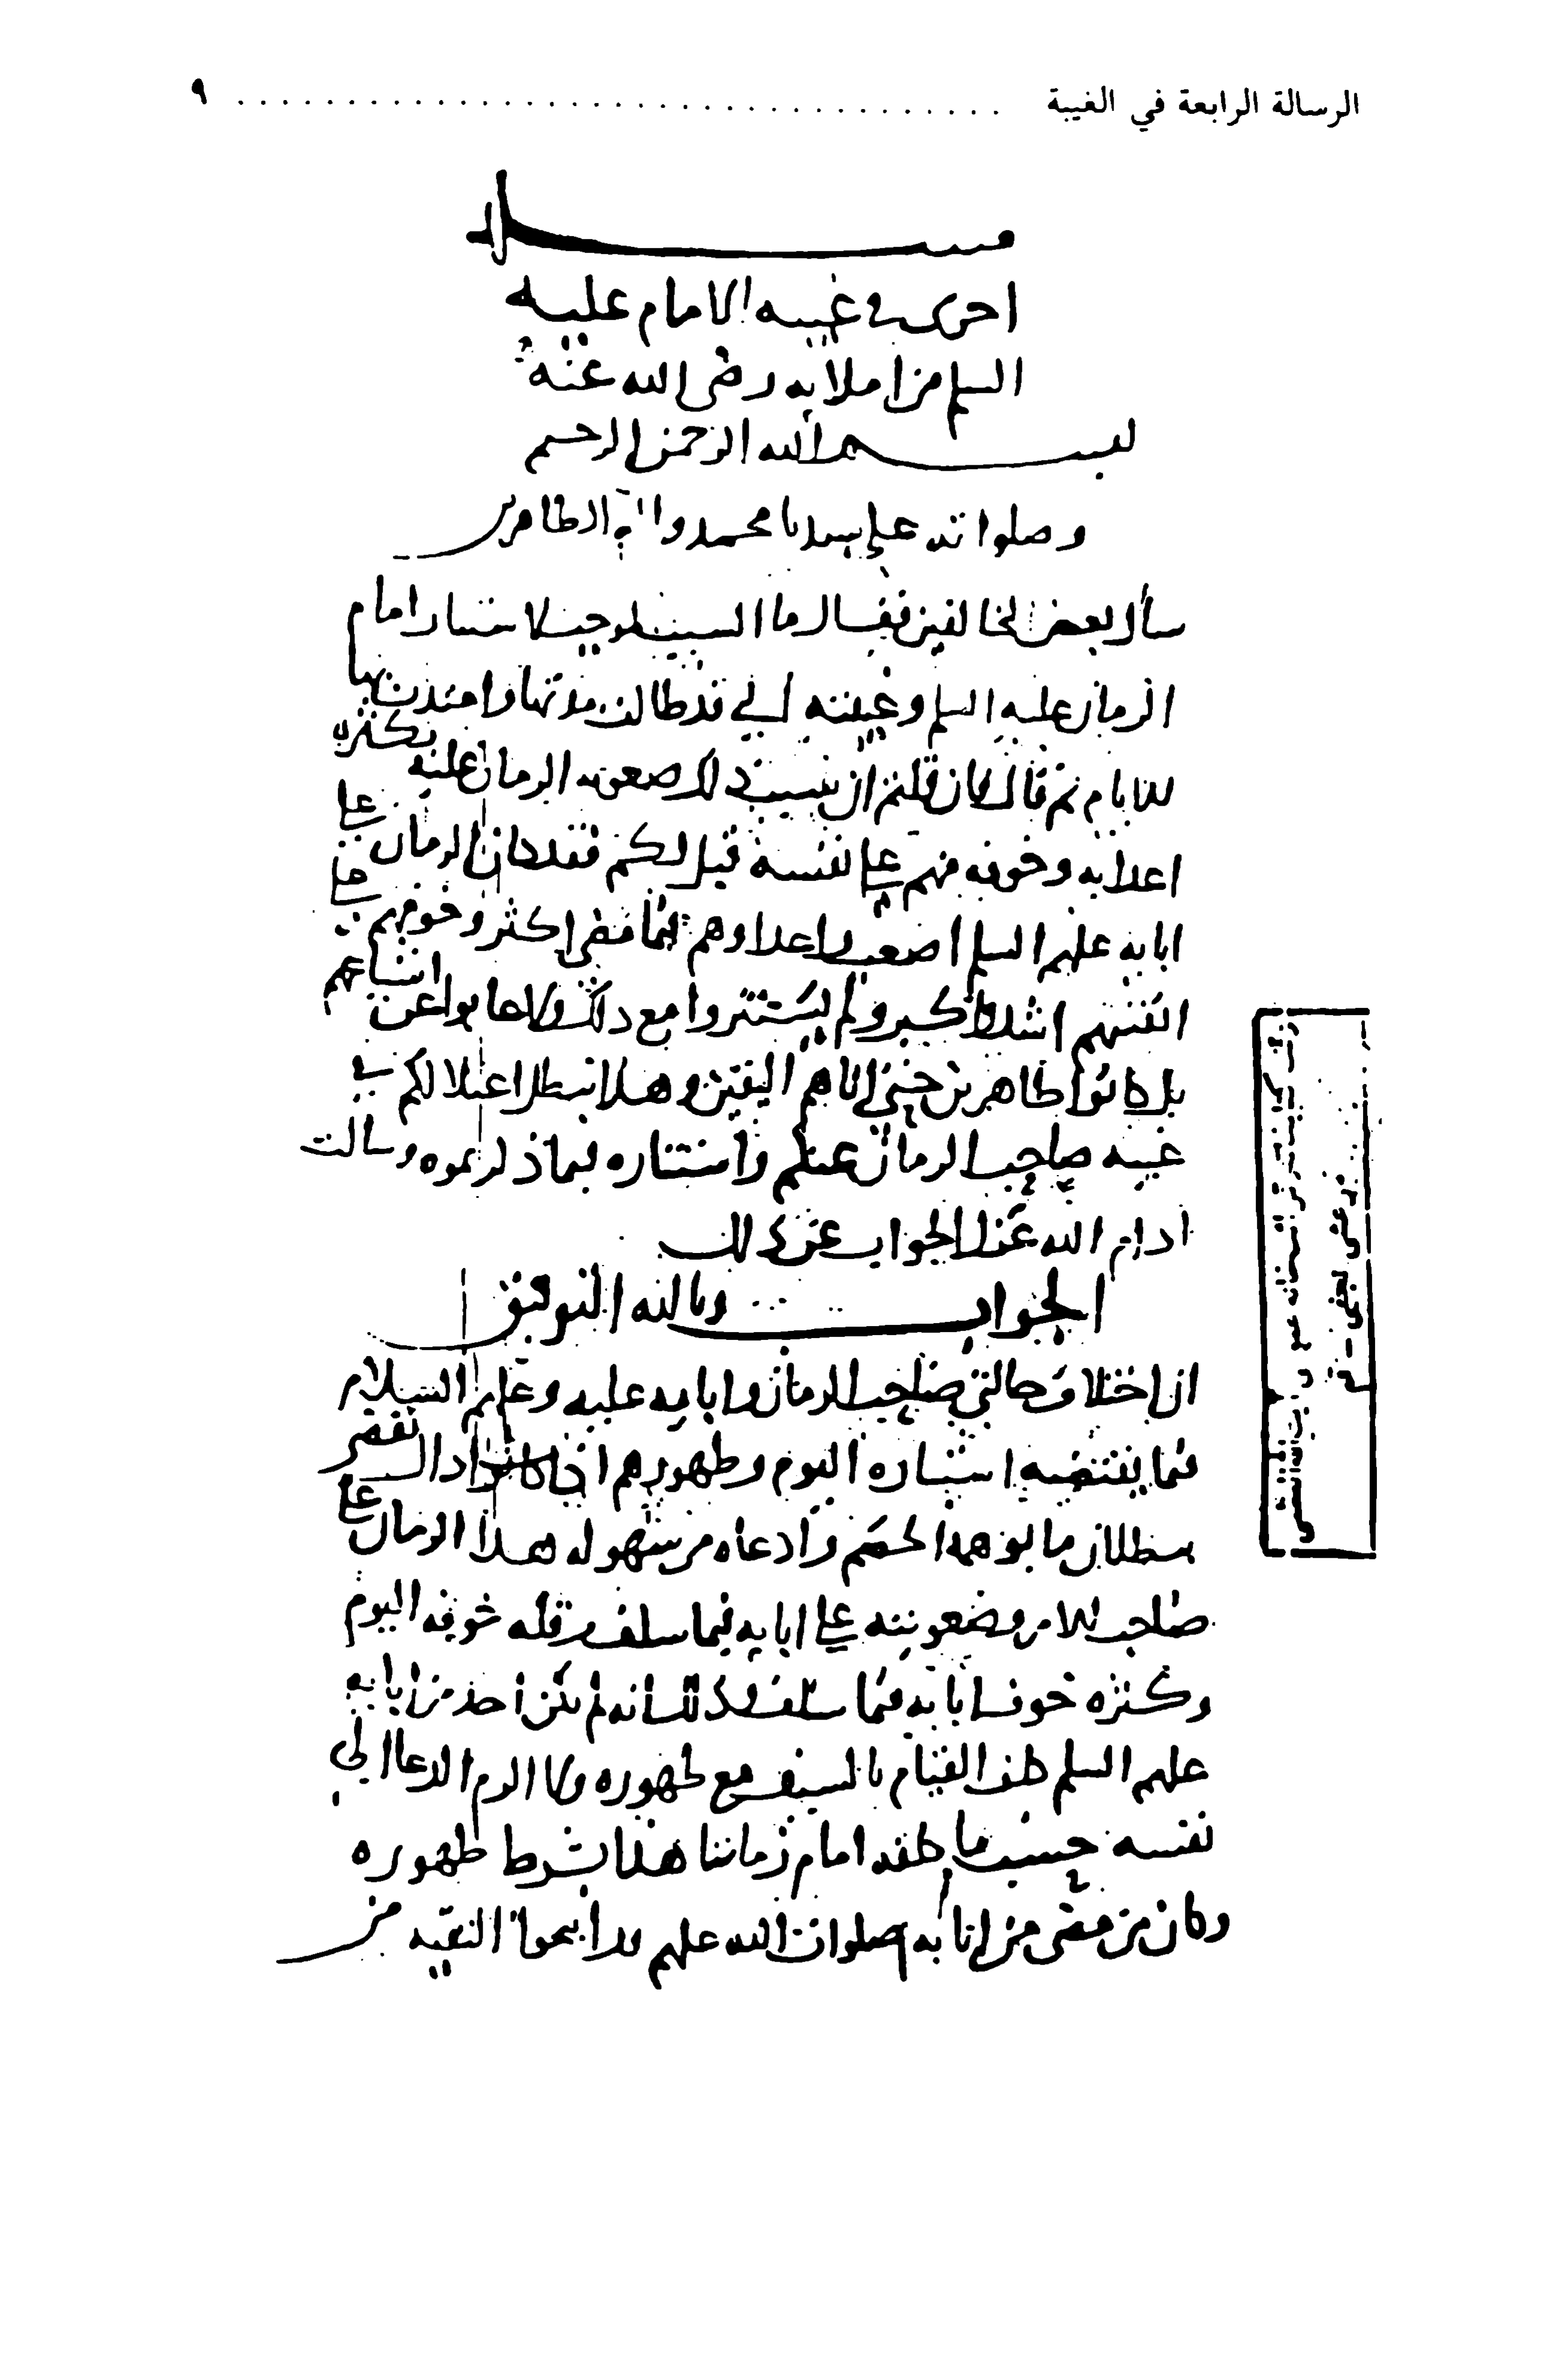 الرسالة الرابعة في الغيبة ........................................ ٩
مسـألة
اخرى في غيبه الامام عليه
السلم من املايه رضى الله عنه
بسم الله الرحمن الرحيم
وصلواته على سيدنا محمد واله الطاهرين
سأل بعض المخالفين فقال ما السبب الموجب لاستتار امام
الزمان عليه السلم وغيبته التي قد طالت مدتها وامتدت بها
الايام ثم قال فان قلتم ان سبب ذلك صعوبه الزمان عليه بكثره
اعدايه وخوفه منهم على نفسه قيل لكم فقد كان الزمان على
ابايه عليهم السلم اصعب واعداوهم فيما مضى اكثر وخوفهم على
انفسهم اشد واكبر ولم يستتروا مع ذلك ولا غابوا عن اشياعهم
بل كانوا ظاهرين حتى اتاهم اليقين وهذا يبطل اعتلالكم في
غيبه صاحب الزمان عنكم واستتاره فيما ذكرتموه وسالت
ادام الله عزك الجواب عن ذلك
الجواب وبالله التوفيق
ان اختلاف حالتي صاحب الزمان وابايه عليه وعليهم السلام
فيما يقتضيه استتاره اليوم وظهورهم اذ ذاك يقضي
ببطلان ما توهمه الخصم وادعاه من سهوله هذا الزمان على
صاحب الامر وصعوبته على ابايه فيما سلف وقله خوفه اليوم
وكثره خوف ابايه فيما سلف وذلك انه لم يكن احد من ابايه
عليهم السلم كلف القيام بالسيف مع ظهوره ولا الزم الدعا الى
نفسه حسب ما كلف امام زماننا هذا بشرط ظهوره
وكان من مضى من ابايه صلوات الله عليهم قد ابيحوا التقيه من